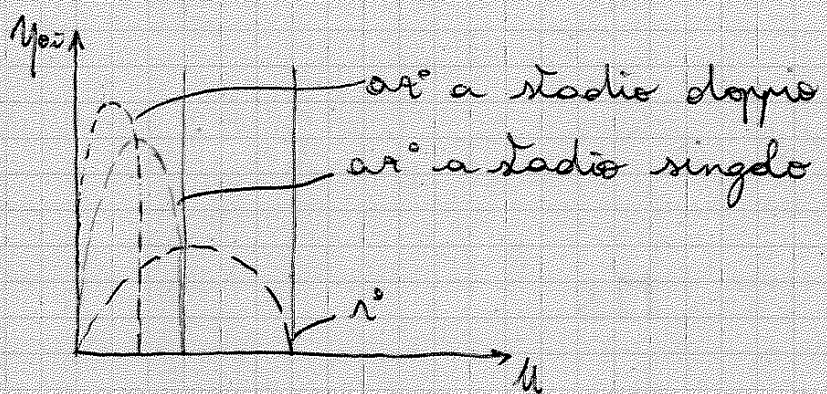 ar° a stadio doppio
ar° a stadio singolo
r°
u